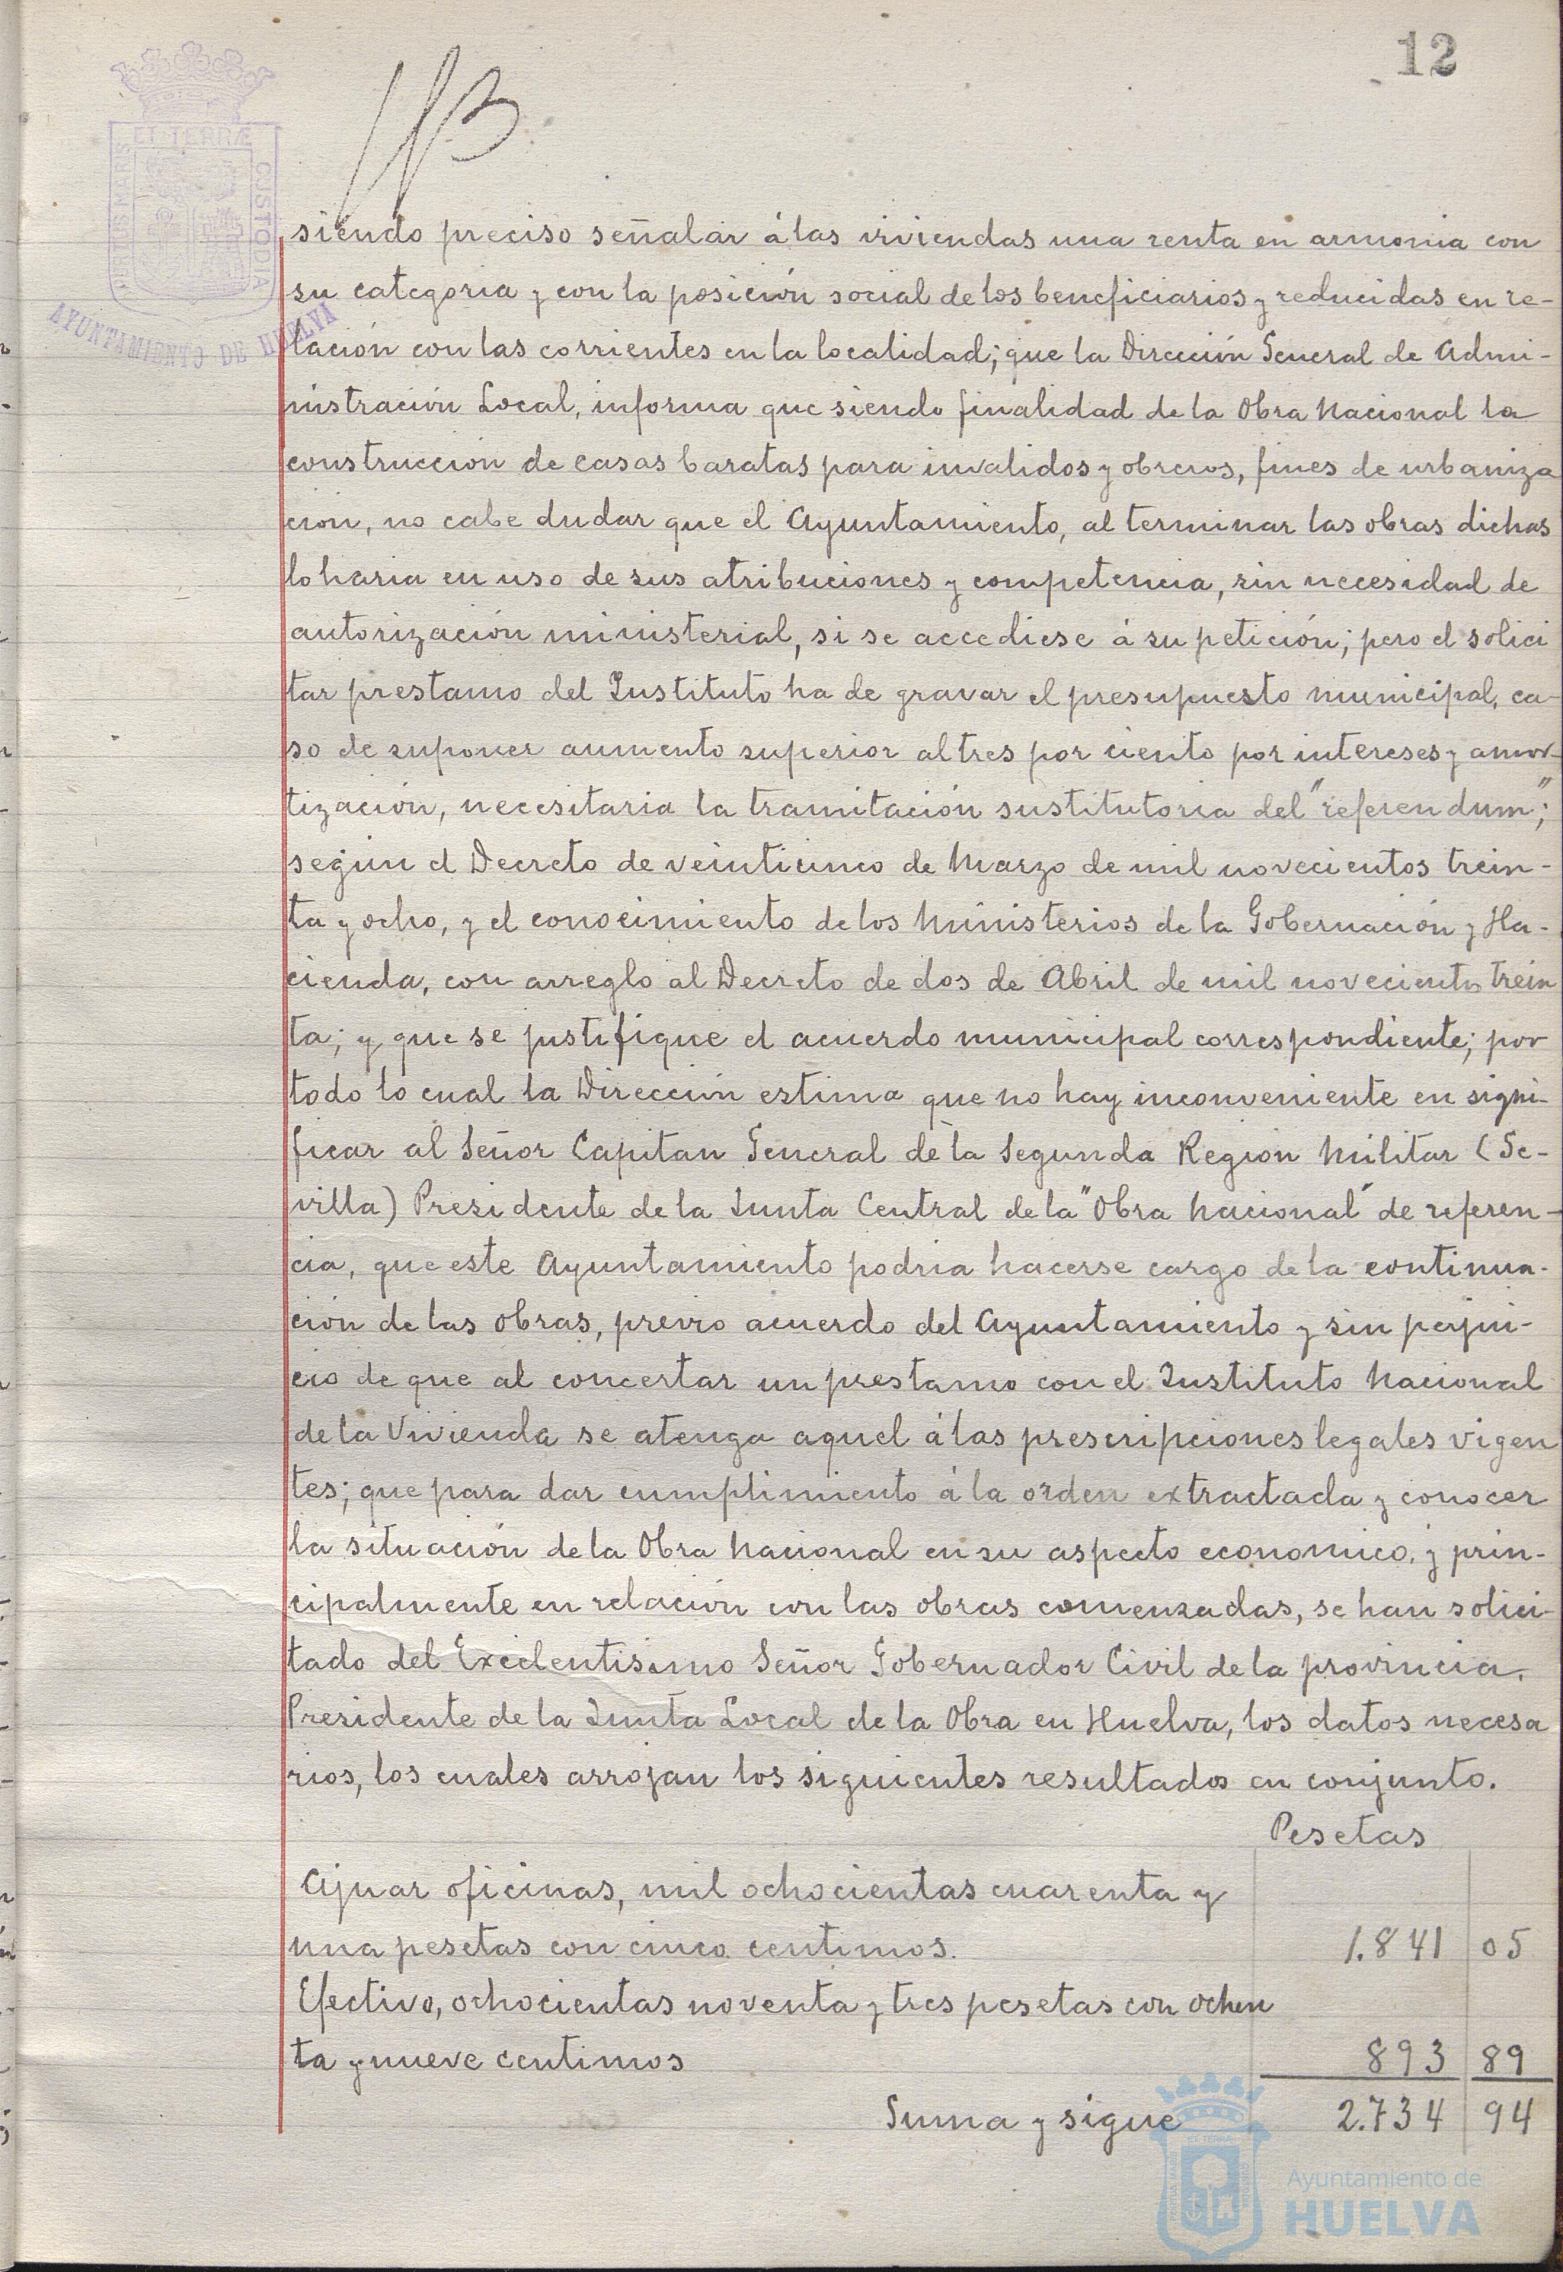 12
PORTUS MARIS ET TERRÆ CUSTODIA
AYUNTAMIENTO DE HUELVA
siendo preciso señalar á las viviendas una renta en armonia con
su categoria y con la posición social de los beneficiarios y reducidas en re-
lación con las corrientes en la localidad; que la Dirección General de Admi-
nistración Local, informa que siendo finalidad de la Obra Nacional la
construcción de casas baratas para invalidos y obreros, fines de urbaniza
ción, no cabe dudar que el Ayuntamiento, al terminar las obras dichas
lo haria en uso de sus atribuciones y competencia, sin necesidad de
autorización ministerial, si se accediese á su petición; pero el solici
tar prestamo del Instituto ha de gravar el presupuesto municipal, ca-
so de suponer aumento superior al tres por ciento por intereses y amor-
tización, necesitaria la tramitación sustitutoria del "referendum";
según el Decreto de veinticinco de Marzo de mil novecientos trein-
ta y ocho, y el conocimiento de los Ministerios de la Gobernación y Ha-
cienda, con arreglo al Decreto de dos de Abril de mil novecientos trein
ta; y que se justifique el acuerdo municipal correspondiente; por
todo lo cual la Dirección estima que no hay inconveniente en signi-
ficar al Señor Capitan General de la Segunda Región Militar (Se-
villa) Presidente de la Junta Central de la "Obra Nacional" de referen-
cia, que este Ayuntamiento podria hacerse cargo de la continua-
ción de las obras, previo acuerdo del Ayuntamiento y sin perjui-
cio de que al concertar un prestamo con el Instituto Nacional
de la Vivienda se atenga aquel á las prescripciones legales vigen
tes; que para dar cumplimiento á la orden extractada y conocer
la situación de la Obra Nacional en su aspecto economico, y prin-
cipalmente en relación con las obras comenzadas, se han solici-
tado del Excelentisimo Señor Gobernador Civil de la provincia,
Presidente de la Junta Local de la Obra en Huelva, los datos necesa
rios, los cuales arrojan los siguientes resultados en conjunto.
Pesetas
Ajuar oficinas, mil ochocientas cuarenta y
una pesetas con cinco centimos. 1.841 05
Efectivo, ochocientas noventa y tres pesetas con ochen
ta y nueve centimos 893 89
Suma y sigue 2.734 94
Ayuntamiento de
HUELVA